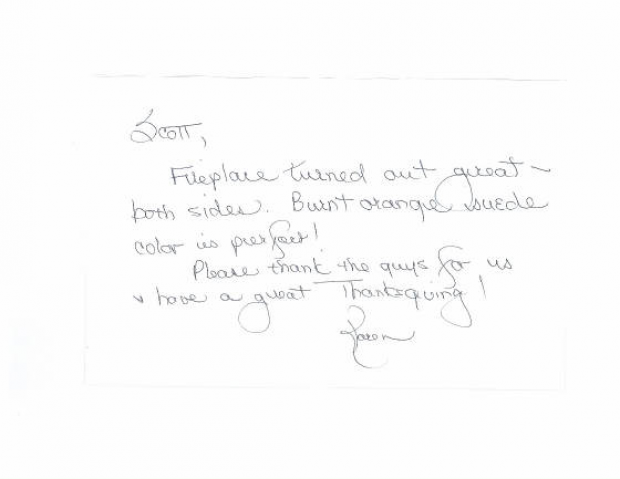 Scott,
Fireplace turned out great ~
both sides. Burnt orange suede
color is perfect!
Please thank the guys for us
& have a great Thanksgiving!
Karen